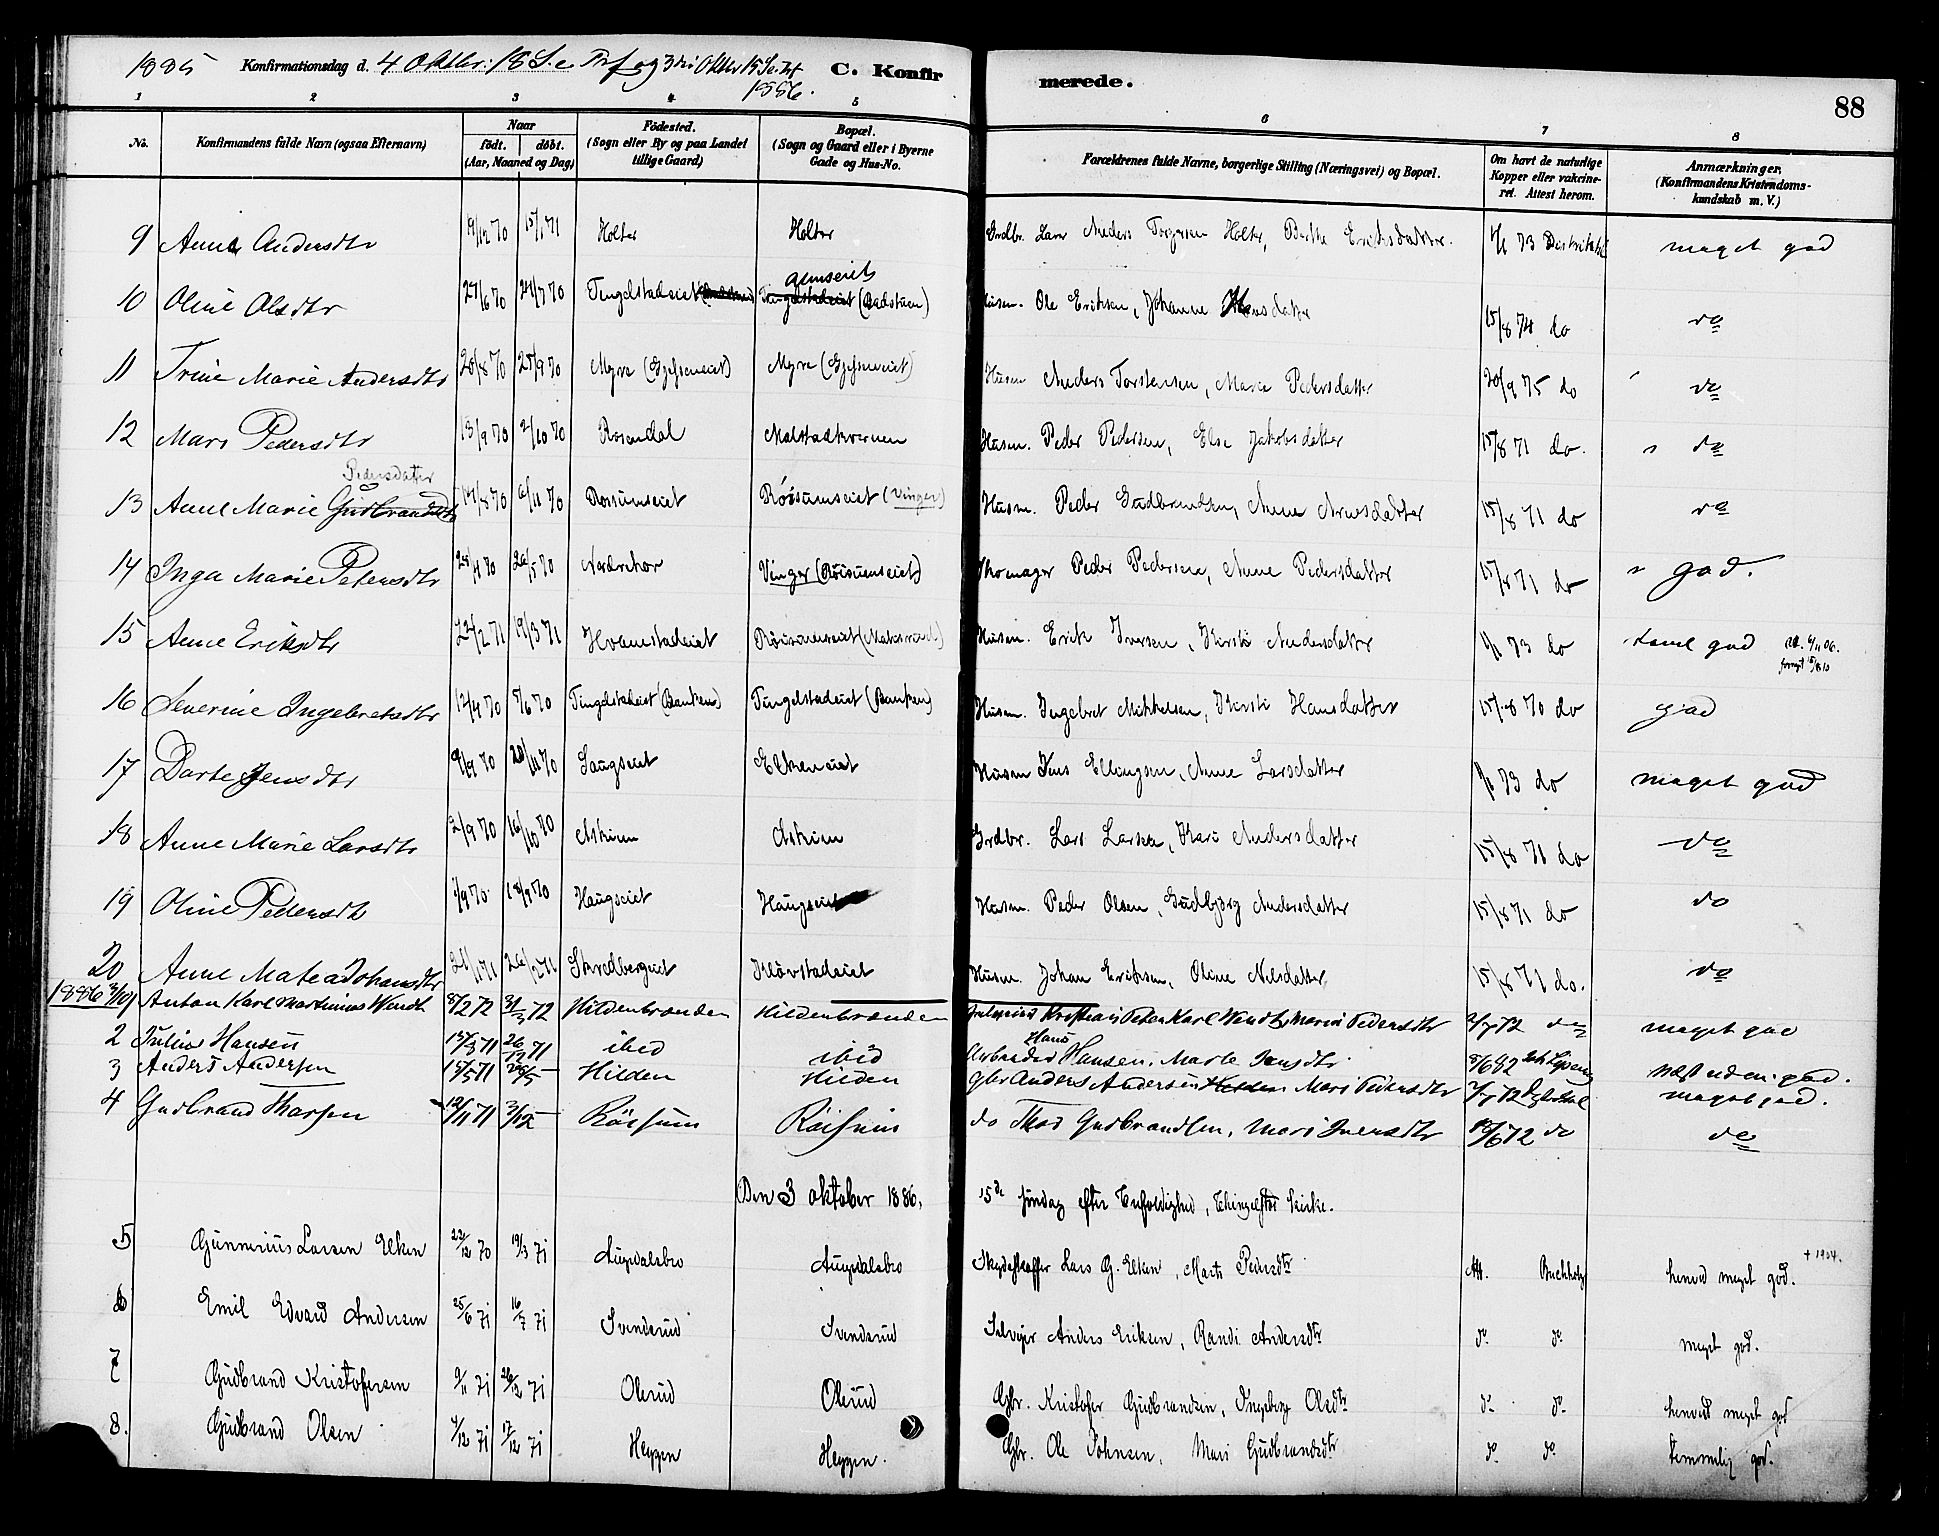 1885 Konfirmationsdag d. 4 Oktbr. 18 S. e Trf og 3die Oktbr 15 Se. Trf 1886. C. Konfirmerede. 88
1 2 3 4 5 6 7 8
No. Konfirmandens fulde Navn (ogsaa Efternavn) Naar født. døbt. (Aar, Maaned og Dag) Fødested. (Sogn eller By og paa Landet tillige Gaard) Bopæl. (Sogn og Gaard eller i Byerne Gade og Hus-No. Forældrenes fulde Navne, borgerlige Stilling (Næringsvei) og Bopæl. Om havt de naturlige Kopper eller vakcineret. Attest herom. Anmærkninger. (Konfirmandens Kristendomskundskab m. V.)
9 Anne Andersdtr 9/12 70 15/1 71 Holter Holter Anders Torgersen Holter, Berthe Eriksdatter. 1/1 73 meget god
10 Oline Olsdtr 27/6 70 24/7 70 Tingelstadeiet Tingelstadeiet (Badstuen) Husm. Ole Eriksen, Johanne Hansdatter 15/8 74 do do
11 Trine Marie Andersdtr 28/8 70 25/9 70 Myra Myra Husm Anders Torstensen, Marie Pedersdatter 20/9 75 do do
12 Mari Pedersdtr 13/9 70 2/10 70 Rosendal Molstadkvernen Husm. Peder Pedersen, Else Jakobsdatter 15/8 71 do. do
13 Anne Marie Gudbrandsdtr Pedersdatter 14/8 70 6/11 70 Røisumseiet Røisumseiet (Vinger) Husm. Peder Gudbrandsen, Anne Arnesdatter 15/8 71 do do
14 Inga Marie Petersdtr 28/4 70 26/5 70 Vinger (Røisumseiet) Skomager Peder Pedersen, Anne Pedersdatter 15/8 71 do god.
15 Anne Eriksdtr 22/2 71 19/3 71 Hvamstadeiet Røisumseiet Husm. Erik Iversen, Kirsti Andersdatter 1/1 73 do god
16 Severine Ingebretsdtr 12/4 70 5/6 70 Tingelstadeiet (Banken) Tingelstadeiet (Banken) Husm. Ingebret Mikkelsen, Kirsti Hansdatter 15/8 70 do god
17 Dorte Jensdtr 9/9 70 20/11 70 Haugseiet Elkeneiet Husm Jens Ellingsen, Anne Larsdatter 1/1 73 do meget god
18 Anne Marie Larsdtr 2/9 70 16/10 70 Askim Askim Grdbr. Lars Larsen, Kari Andersdatter 15/8 71 do do
19 Oline Pedersdtr 1/9 70 18/9 70 Haugseiet Haugseiet Husm. Peder Olsen, Gudbjørg Andersdatter 15/8 71 do do
20 Anne Matea Johansdtr 21/1 71 26/2 71 Skredbergeiet Kløvstadeiet Husm. Johan Eriksen, Oline Nilsdatter, 15/8 71 do. do
1886 3/10 1 Anton Karl Martinius Wendt 8/2 72 31/3 72 Hildenbranden Hildenbranden Kristian Peter Karl Wendt, Maria Pedersdtr 2/7 72 do meget god
2 Julius Hansen 15/8 71 26/12 71 ibid ibid Arbeider Hans Hansen, Marte Jensdtr 8/6 82
3 Anders Andersen 15/5 71 29/5 — Hilden Hilden Gbr Anders Andersen Hilden Mari Pedersdtr 2/7 72 meget god.
4 Gudbrand Thorsen 12/11 71 3/12 — Röisum Röisum do Thor Gudbrandsen, Mari Iversdtr 12/6 72 do do
Den 3 oktober 1886, 15de søndag efter Trefoldighed, Thingelstad Kirke.
5 Gunnerius Larsen Elken 22/12 70 19/3 71 Augedalsbro Augedalsbro Skydsskaffer Lars G. Elken, Marte Pedersdtr Att. Buchholz henved meget god. + 1904.
6 Emil Edvard Andersen 25/6 71 16/7 71 Svenderud Svenderud Selveier Anders Eriksen, Randi Andersdtr do do meget god.
7 Gudbrand Kristofersen 9/11 71 26/12 71 Olerud Olerud Gbr. Kristofer Gudbrandsen, Ingeborg Olsdtr do do. henved meget god
8. Gudbrand Olsen 4/12 71 17/12 71 Heggen Heggen. Gbr. Ole Johnsen, Mari Gudbrandsdtr do do. temmelig god.